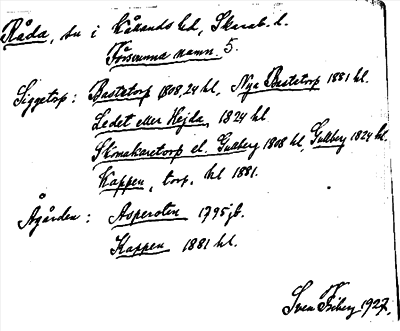 Råda, sn i Kållands hd, Skarab. l.
Försvunna namn. 5.
Siggetorp: Bastetorp 1808, 24 hl., Nya Bastetorp 1881 hl.
Ledet eller Hejda, 1824 hl
Skomakaretorp el. Gullberg 1808 hl, Gullberg 1824 hl.
Kappen, torp, hl 1881.
Ågården: Asperoten 1795 jb.
Kappen 1881 hl.
Sven Friberg 1927.